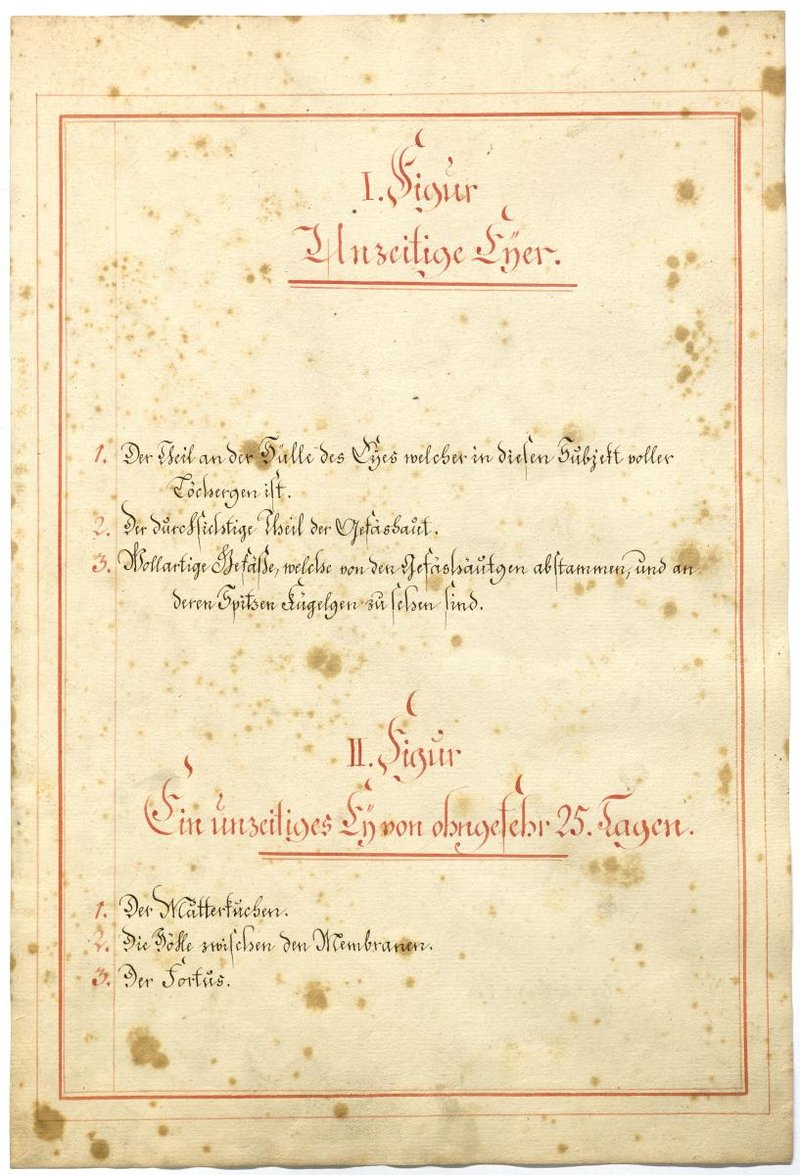 I. Figur
Unzeitige Eÿer.
1. Der Theil an der Hülle des Eÿes welcher in diesen Subjekt voller
Löchergen ist.
2. Der durchsichtige Theil der Gefäshaut.
3. Wollartige Gefäße, welche von den Gefäshäutgen abstammen, und an
deren Spitzen Kügelgen zu sehen sind.
II. Figur
Ein unzeitiges Eÿ von ohngefehr 25. Tagen.
1. Der Mutterkuchen.
2. Die Höhle zwischen den Membranen.
3. Der Förtus.